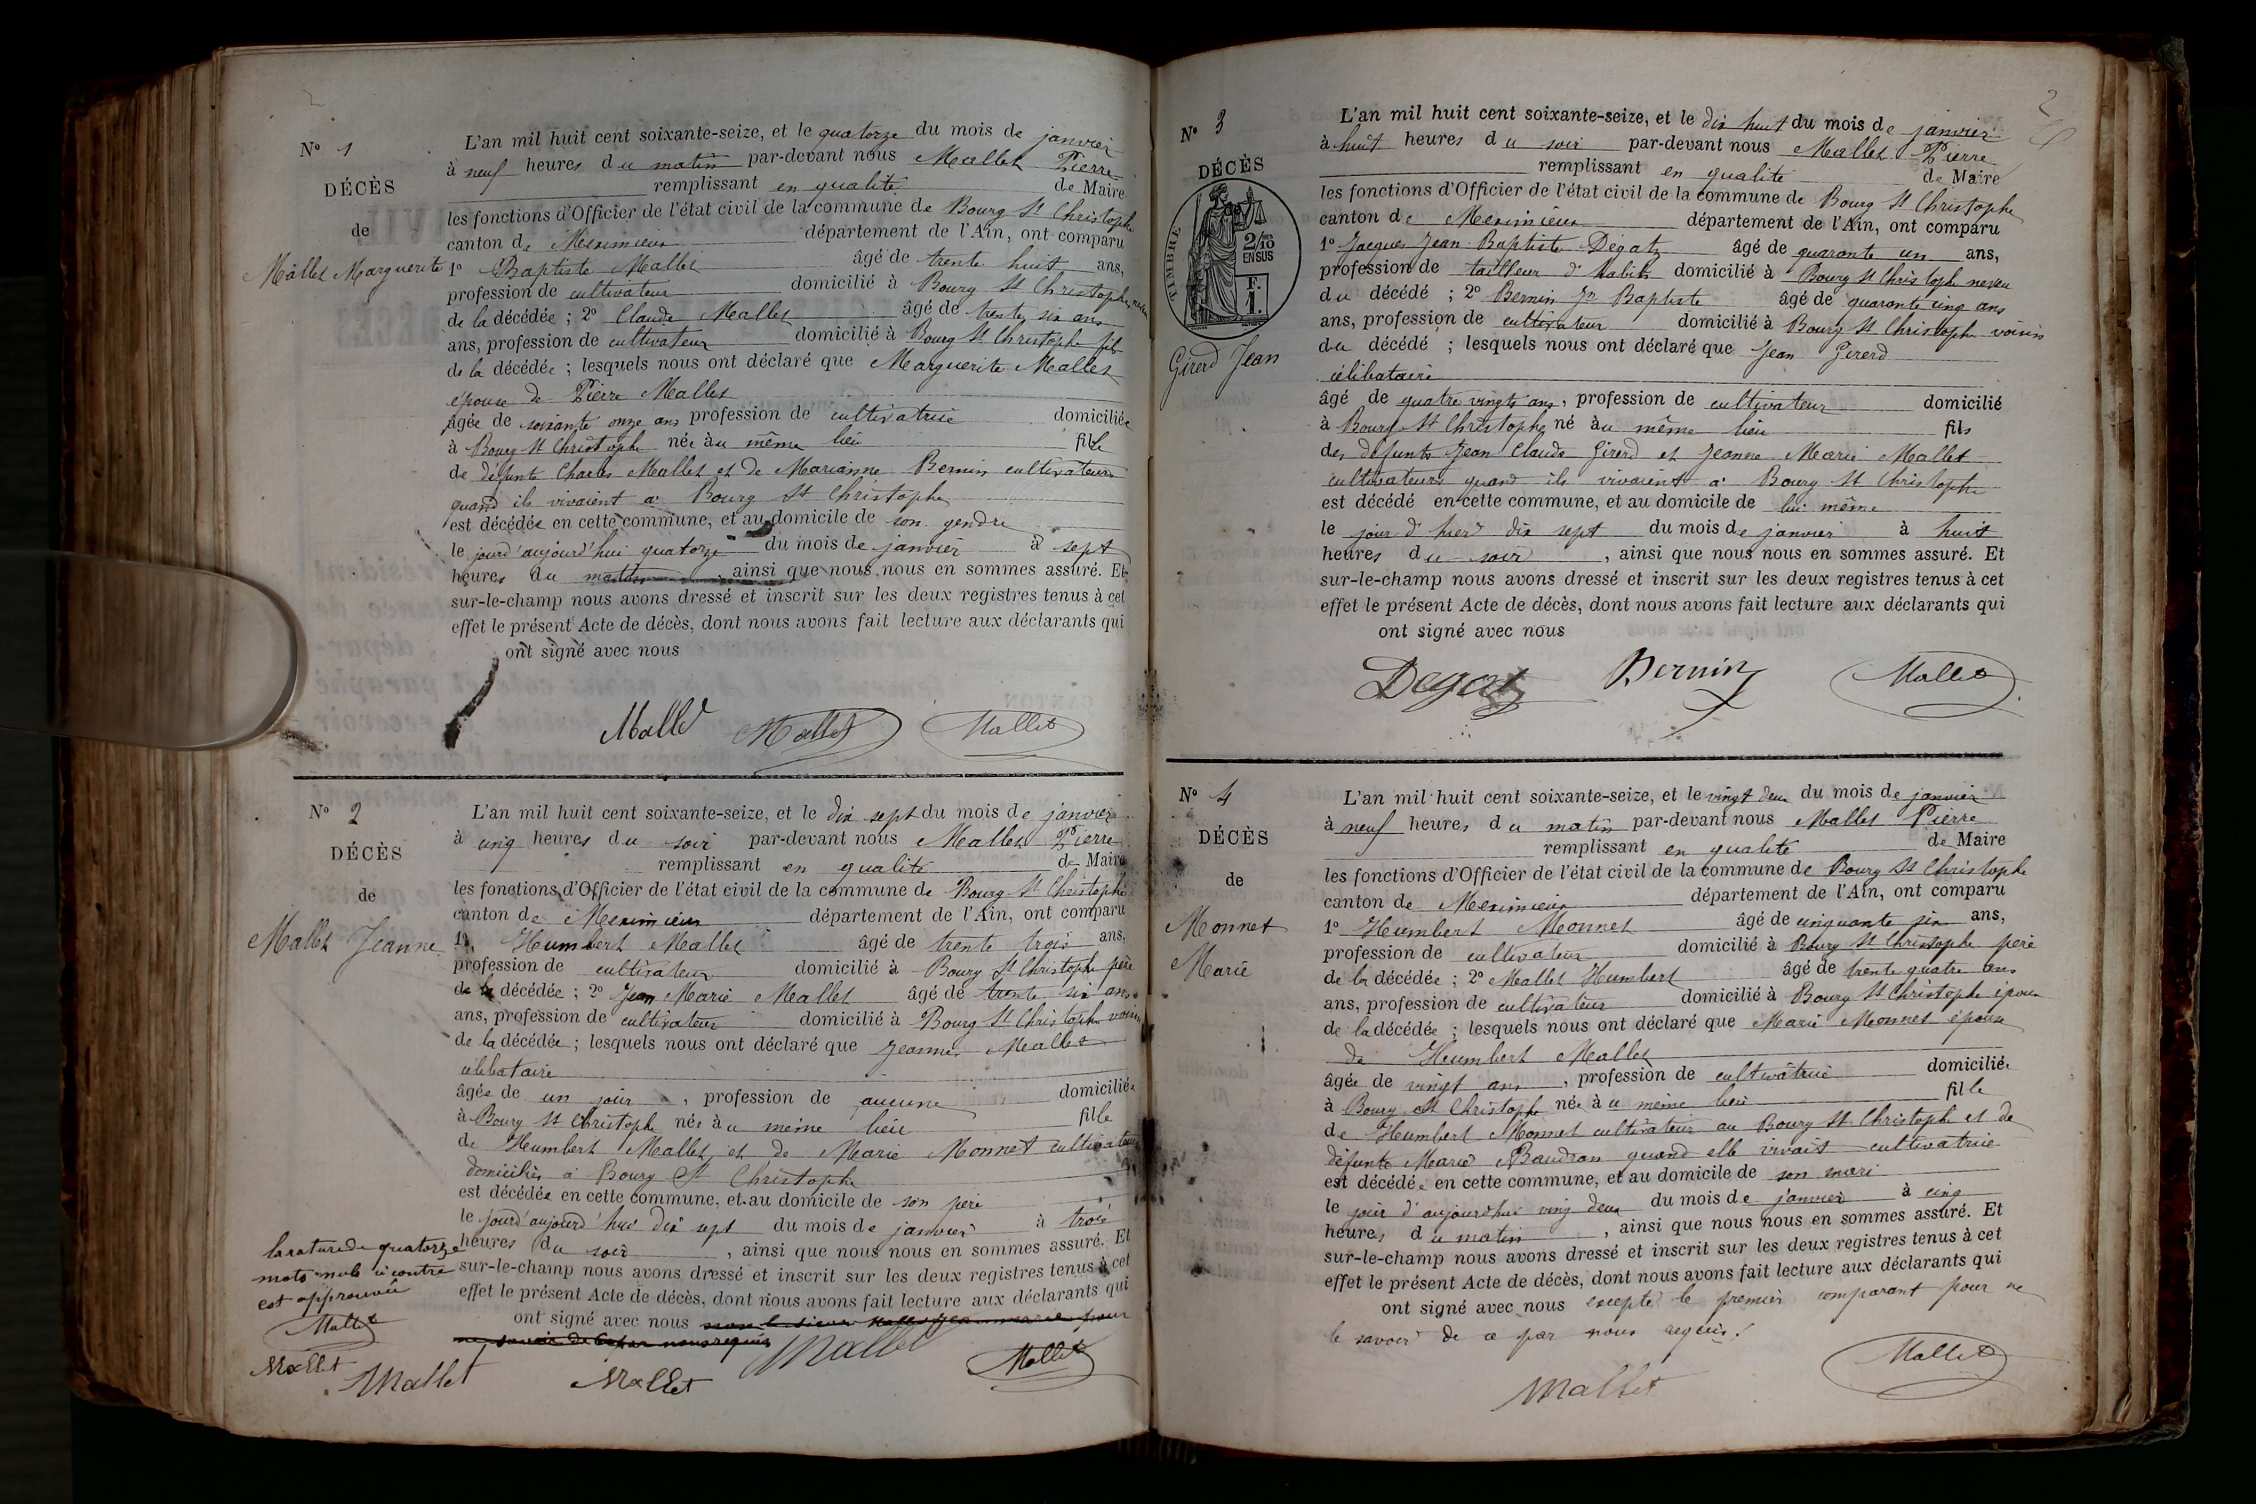 N° 1
DÉCÈS
de
Mallet Marguerite
L'an mil huit cent soixante-seize, et le quatorze du mois de janvier
à neuf heures du matin par-devant nous Mallet Pierre
remplissant en qualité de Maire
les fonctions d'Officier de l'état civil de la commune de Bourg St Christophe
canton de Meximieux département de l'Ain, ont comparu
1° Baptiste Mallet âgé de trente huit ans,
profession de cultivateur domicilié à Bourg St Christophe
de la décédée ; 2° Claude Mallet âgé de trente six ans
ans, profession de cultivateur domicilié à Bourg St Christophe fils
de la décédée ; lesquels nous ont déclaré que Marguerite Mallet
épouse de Pierre Mallet
âgée de soixante onze ans profession de cultivatrice domiciliée
à Bourg St Christophe née au même lieu fille
de défunts Mallet et de Marianne Bernin cultivateurs
quand ils vivaient à Bourg St Christophe
est décédée en cette commune, et au domicile de son gendre
le jourd'aujourd'hui quatorze du mois de janvier à sept
heures du matin, ainsi que nous nous en sommes assuré. Et
sur-le-champ nous avons dressé et inscrit sur les deux registres tenus à cet
effet le présent Acte de décès, dont nous avons fait lecture aux déclarants qui
ont signé avec nous
Mallet Mallet Mallet
N° 2
DÉCÈS
de
Mallet Jeanne
L'an mil huit cent soixante-seize, et le dix sept du mois de janvier
à cinq heures du soir par-devant nous Mallet Pierre
remplissant en qualité de Maire
les fonctions d'Officier de l'état civil de la commune de Bourg St Christophe
canton de Meximieux département de l'Ain, ont comparu
1° Humbert Mallet âgé de trente trois ans,
profession de cultivateur domicilié à Bourg St Christophe père
de la décédée ; 2° Jean Marie Mallet âgé de trente six ans
ans, profession de cultivateur domicilié à Bourg St Christophe voisin
de la décédée ; lesquels nous ont déclaré que Jeanne Mallet
célibataire
âgée de un jour, profession de aucune domiciliée
à Bourg St Christophe née au même lieu fille
de Humbert Mallet et de Marie Monnet cultivateurs
domiciliés à Bourg St Christophe
est décédée en cette commune, et au domicile de son père
le jourd'aujourd'hui dix sept du mois de janvier à trois
heures du soir, ainsi que nous nous en sommes assuré. Et
sur-le-champ nous avons dressé et inscrit sur les deux registres tenus à cet
effet le présent Acte de décès, dont nous avons fait lecture aux déclarants qui
ont signé avec nous
la rature de quatorze
mots nuls ci contre
est approuvée
Mallet
Mallet Mallet Mallet Mallet Mallet
2
N° 3
DÉCÈS
TIMBRE
2/10
EN SUS
F.
1.
Girerd Jean
L'an mil huit cent soixante-seize, et le dix huit du mois de janvier
à huit heures du soir par-devant nous Mallet Pierre
remplissant en qualité de Maire
les fonctions d'Officier de l'état civil de la commune de Bourg St Christophe
canton de Meximieux département de l'Ain, ont comparu
1° Jacques Jean Baptiste Dégatz âgé de quarante un ans,
profession de tailleur d'habits domicilié à Bourg St Christophe neveu
du décédé ; 2° Bernin Jn Baptiste âgé de quarante cinq ans
ans, profession de cultivateur domicilié à Bourg St Christophe voisin
du décédé ; lesquels nous ont déclaré que Jean Girerd
célibataire
âgé de quatre vingts ans, profession de cultivateur domicilié
à Bourg St Christophe né au même lieu fils
des défunts Jean Claude Girerd et Jeanne Marie Mallet
cultivateurs quand ils vivaient à Bourg St Christophe
est décédé en cette commune, et au domicile de lui même
le jour d'hier dix sept du mois de janvier à huit
heures du soir, ainsi que nous nous en sommes assuré. Et
sur-le-champ nous avons dressé et inscrit sur les deux registres tenus à cet
effet le présent Acte de décès, dont nous avons fait lecture aux déclarants qui
ont signé avec nous
Degatz Bernin Mallet
N° 4
DÉCÈS
de
Monnet
Marie
L'an mil huit cent soixante-seize, et le vingt deux du mois de janvier
à neuf heures du matin par-devant nous Mallet Pierre
remplissant en qualité de Maire
les fonctions d'Officier de l'état civil de la commune de Bourg St Christophe
canton de Meximieux département de l'Ain, ont comparu
1° Humbert Monnet âgé de cinquante six ans,
profession de cultivateur domicilié à Bourg St Christophe père
de la décédée ; 2° Mallet Humbert âgé de trente quatre ans
ans, profession de cultivateur domicilié à Bourg St Christophe époux
de la décédée ; lesquels nous ont déclaré que Marie Monnet épouse
de Humbert Mallet
âgée de vingt ans, profession de cultivatrice domiciliée
à Bourg St Christophe née au même lieu fille
de Humbert Monnet cultivateur au Bourg St Christophe et de
défunte Marie Baudran quand elle vivait cultivatrice
est décédée en cette commune, et au domicile de son mari
le jour d'aujourdhui ving deux du mois de janvier à cinq
heures du matin, ainsi que nous nous en sommes assuré. Et
sur-le-champ nous avons dressé et inscrit sur les deux registres tenus à cet
effet le présent Acte de décès, dont nous avons fait lecture aux déclarants qui
ont signé avec nous excepté le premier comparant pour ne
le savoir de ce par nous requis.
Mallet Mallet